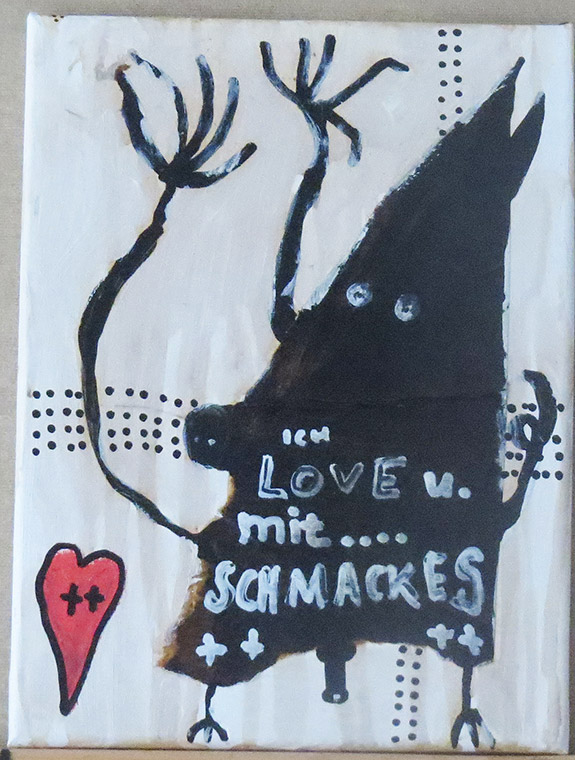 ICH
LOVE u.
mit....
SCHMACKES